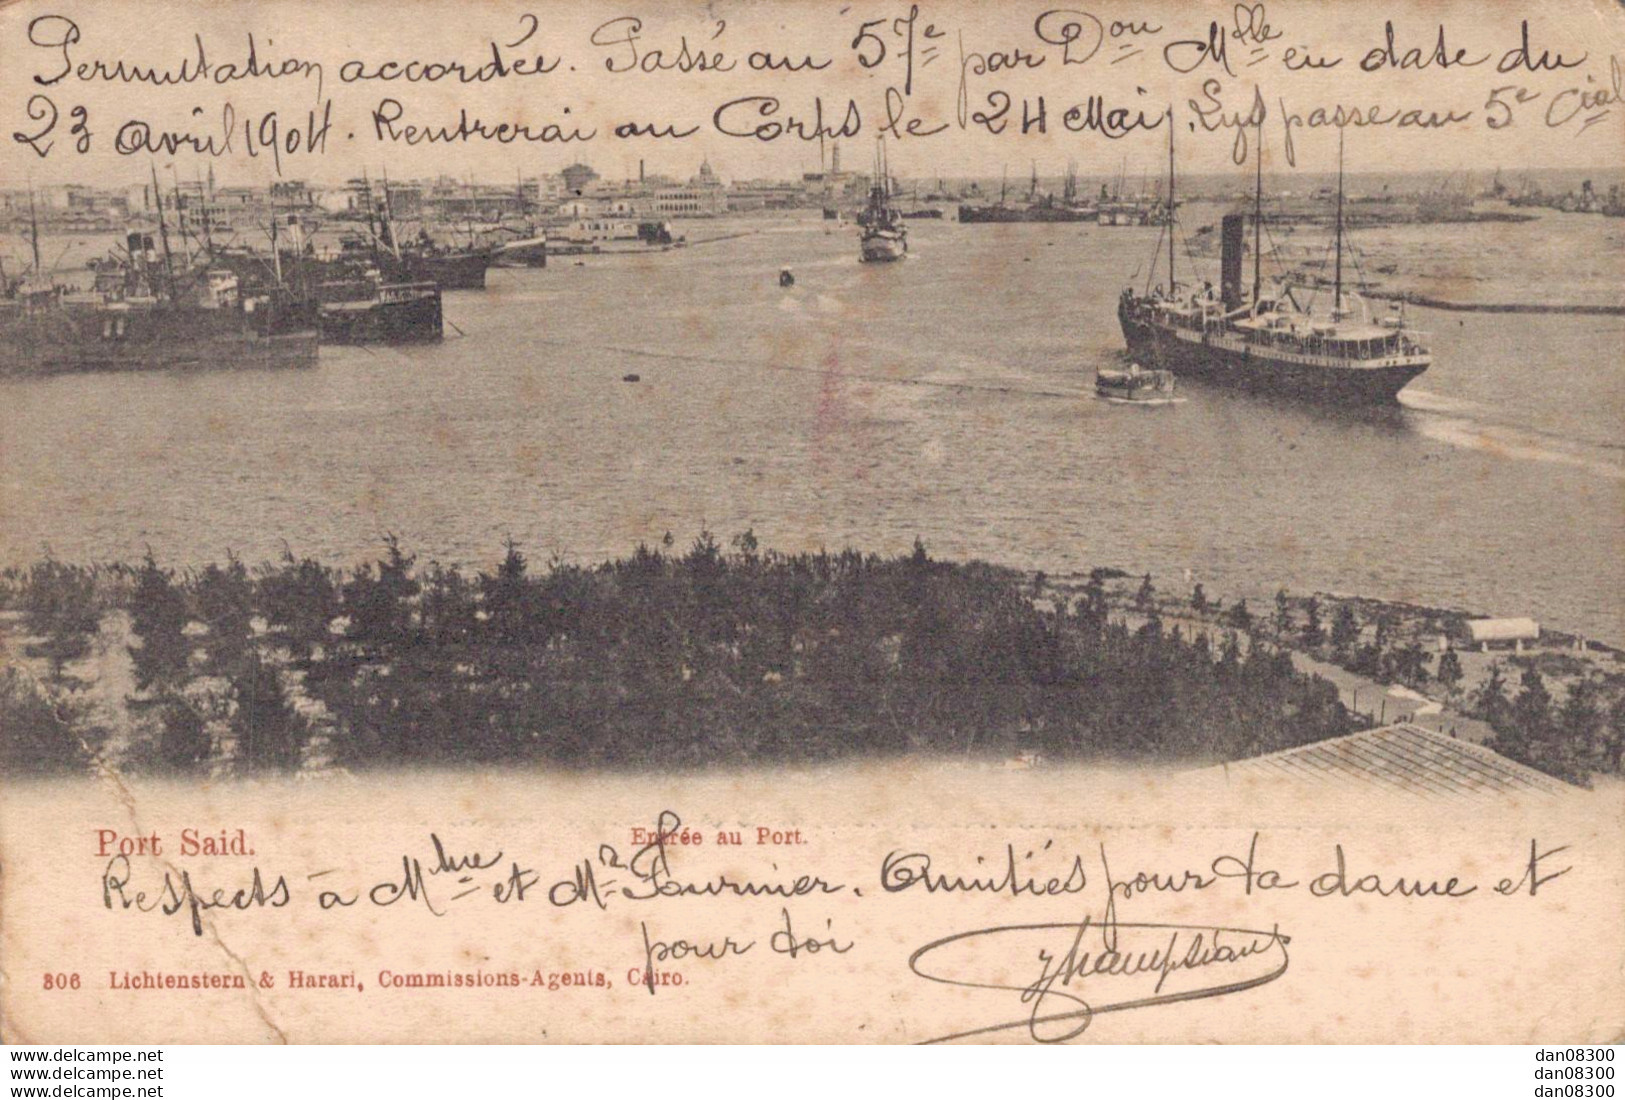 Permutation accordée. Passé au 57e par Don Mlle en date du
23 avril 1904. Rentrerai au Corps le 24 Mai. Lys passe au 5e Cial
Port Said.
Entrée au Port.
Respects à Mme et Mr Fournier. Amitiés pour ta dame et
pour toi
306 Lichtenstern & Harari, Commissions-Agents, Cairo.
www.delcampe.net
www.delcampe.net
www.delcampe.net
dan08300
dan08300
dan08300